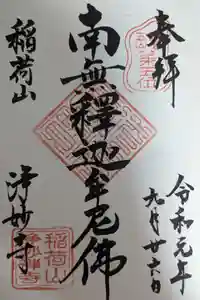 奉拝
令和元年
九月廿六日
南無釋迦牟尼佛
稲荷山
浄妙寺
稲荷山